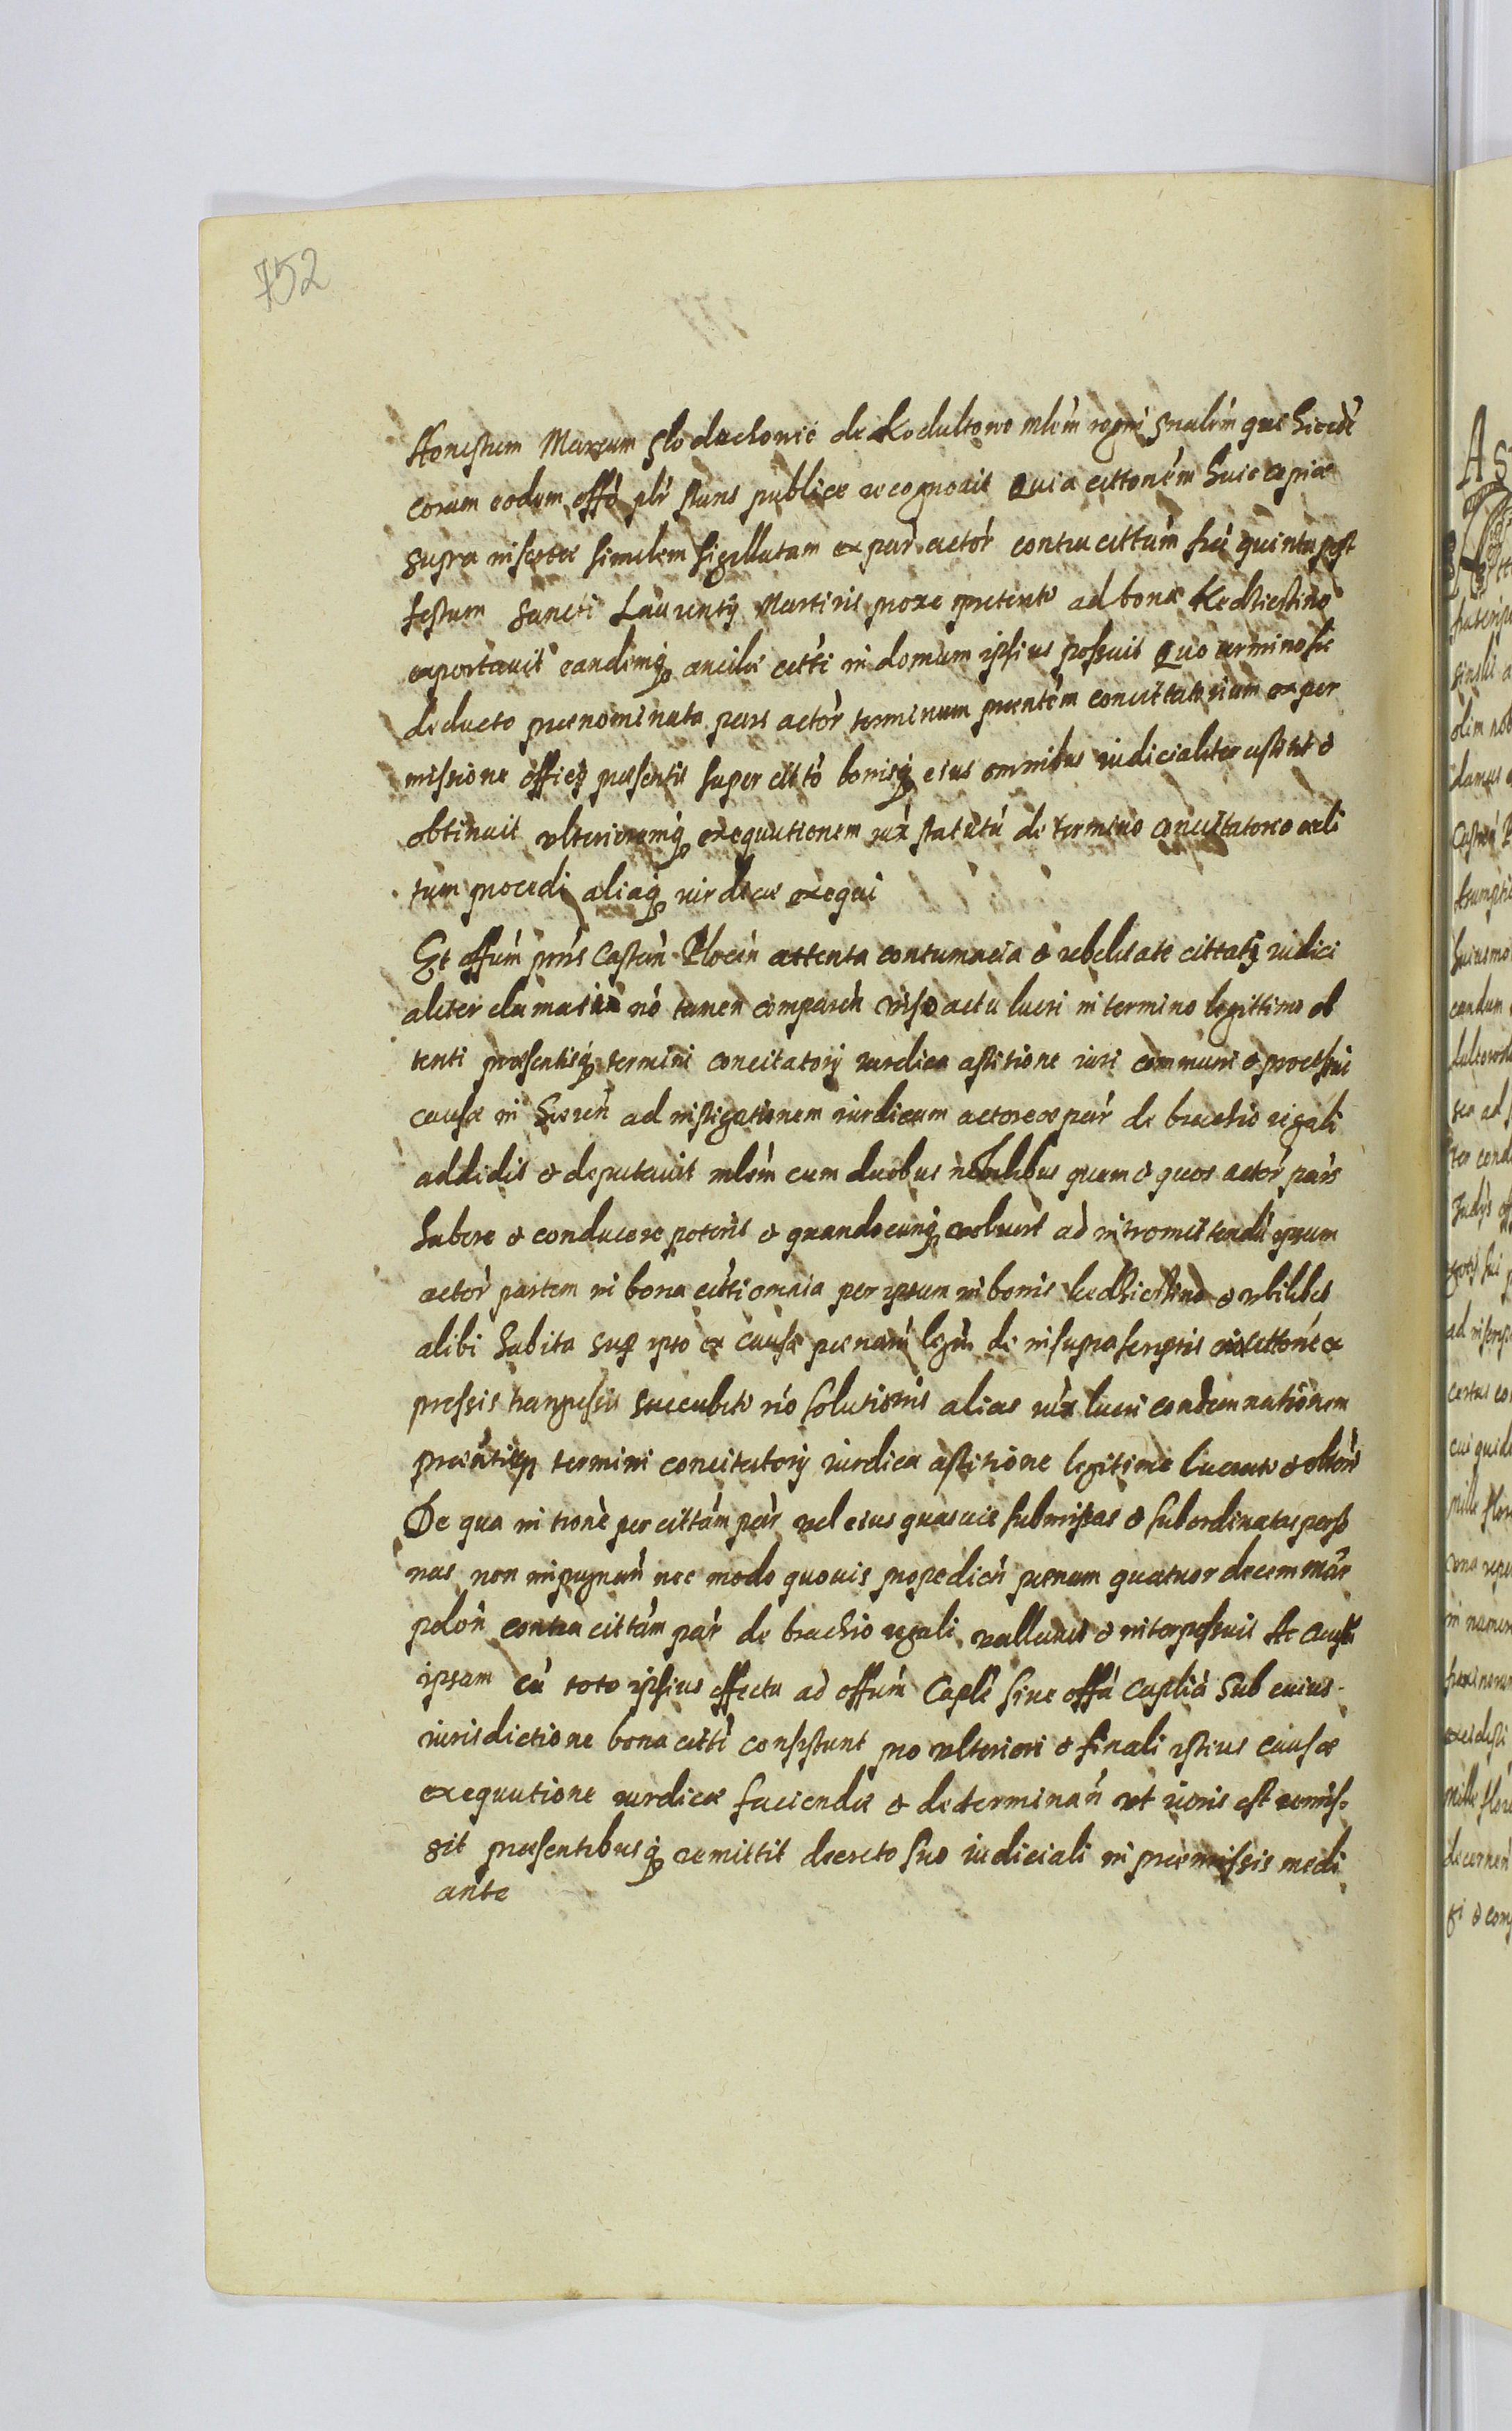 752
Honestum Marcum Sloduchowic de Kodultowo mlem regni gnalem qui hic
coram eodem offo plr stans publice recognovit Quia cittonem huic copiae
supra insertae similem sigillatam ex par actor contra cittum fer quinta post
festum Sancti Laurentij Martiris proxe preterito ad bona
exportavit eandemq ancilae citti in domum ipsius possuit Quo termino sic
deducto praenominata pars actor terminum praentem concitatorium ex per
missione officij praesentis super citto bonisq eius omnibus iudicialiter astitit &
obtinuit ulterioremq exequutionem iux statutu de termino concitatorio
tum procedi aliaq iurdice exequi
Et offum prns Castrn Plocen attenta contumacia & rebelitate cittati iudici
aliter clamati no tamen comparen viso actu lucri in termino legittimo ob
tenti praesentisq termini concitatorij iurdica astitione iuri communi & processui
causae in haeren ad instigationem iurdicam actoreae par de brachio regali
addidit & deputavit mlem cum duobus nobilibus quem & quos actor pars
habere & conducere poterit & quandocunq voluerit ad intromittendu ipsam
actor partem in bona citti omnia per ipsum in bonis & ubilibet
alibi habita sup ipso ex causa paenaru legu de in suprascriptis citтone ex
pressis transgressis succubito no solutionis alias iux lucri condemnationem
praentisq termini concitatorij iurdica astitione legitime lucrato & obtent
De qua in tione per cittam par vel eius quasvis submissas & subordinatas perso
nas non impugnan nec modo quovis propedien paenam quatuordecem mar
polon contra cittam par de brachio regali vallavit & interpossuit Ac causa
ipsam cu toto ipsius effectu ad offum Caple sive offa Caplia sub cuius
iurisdictione bona citti consistunt pro ulteriori & finali istius causae
exequutione iurdicae faciendae & determinan ut iuris est remis
sit praesentibusq remittit decreto suo iudiciali in praemissis medi
ante